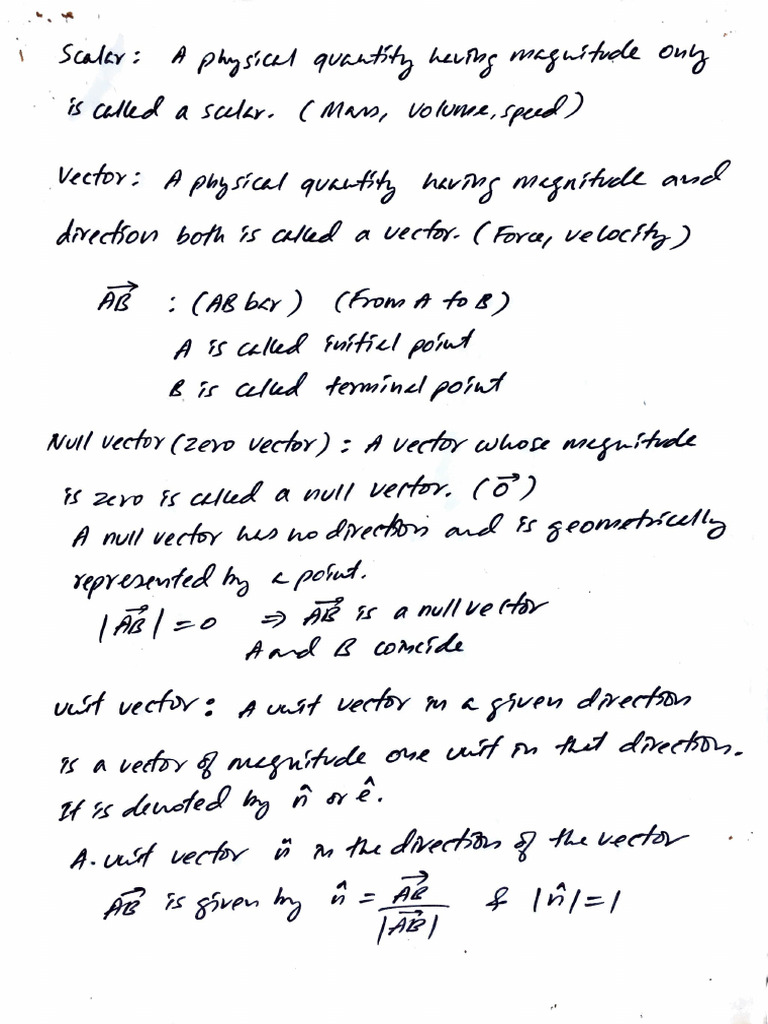 Scalar: A physical quantity having magnitude only
is called a scalar. (Mass, volume, speed)
Vector: A physical quantity having magnitude and
direction both is called a vector. (Force, velocity)
$\overrightarrow{AB}$ : (AB bar) (From A to B)
A is called initial point
B is called terminal point
Null vector (zero vector): A vector whose magnitude
is zero is called a null vector. ($\vec{0}$)
A null vector has no direction and is geometrically
represented by a point.
$|\overrightarrow{AB}| = 0$ ⇒ $\overrightarrow{AB}$ is a null vector
A and B coincide
Unit vector: A unit vector in a given direction
is a vector of magnitude one unit in that direction.
It is denoted by $\hat{n}$ or $\hat{e}$.
A unit vector $\hat{n}$ in the direction of the vector
$\overrightarrow{AB}$ is given by $\hat{n} = \frac{\overrightarrow{AB}}{|\overrightarrow{AB}|}$ & $|\hat{n}| = 1$